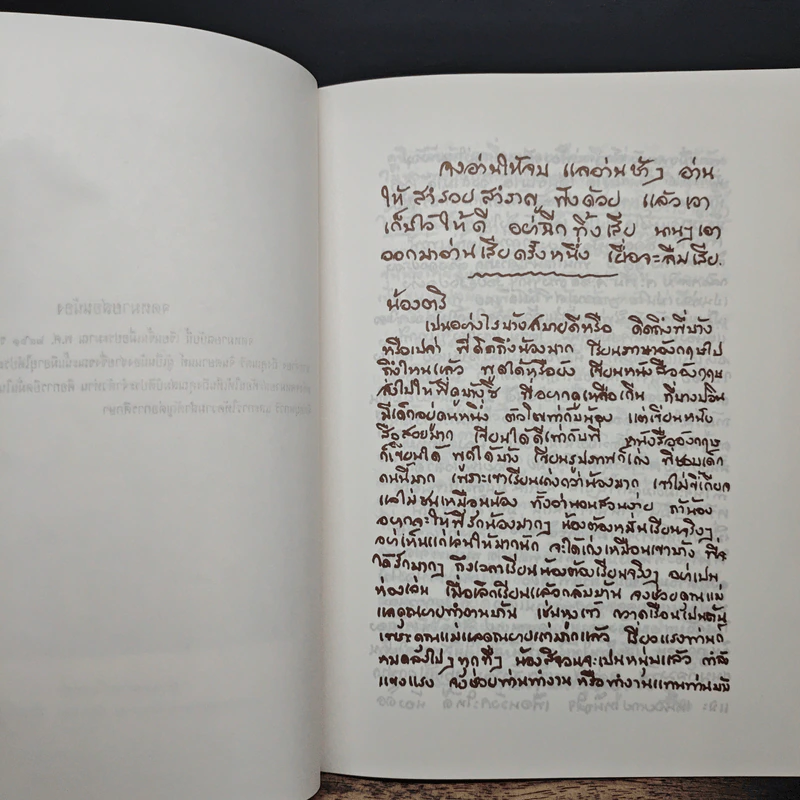 จดหมายสอนน้อง
จงอ่านให้จบ แลอ่านช้าๆ อ่าน
ให้ สำรอย สำราญ ฟังด้วย แล้วเอา
เก็บไว้ให้ดี อย่าฉีกทิ้งเสีย นานๆเอา
ออกมาอ่านเสียครั้งหนึ่ง เผื่อจะลืมเสีย.
น้องตริ
เปนอย่างไรบ้างสบายดีหรือ คิดถึงพี่บ้าง
หรือเปล่า พี่คิดถึงน้องมาก เรียนภาษาอังกฤษไป
ถึงไหนแล้ว พูดได้หรือยัง เขียนหนังสืออังกฤษ
ส่งไปให้พี่ดูบ้างซี พี่อยากดูเหลือเกิน ที่บางปวิน
มีเด็กอยู่คนหนึ่ง ตัวโตเท่ากับน้อง แต่เขียนหนัง
สือสวยมาก เขียนได้ดีเท่ากับพี่ หนังสืออังกฤษ
ก็เขียนได้ พูดได้บ้าง เขียนรูปภาพก็เก่ง พี่ชอบเด็ก
คนนี้มาก เพราะเขาเรียนเก่งกว่าน้องมาก เขาไม่ขี้เกียจ
แลไม่ซนเหมือนน้อง ทั้งว่านอนสอนง่าย ถ้าน้อง
อยากจะให้พี่รักน้องมากๆ น้องต้องหมั่นเรียนจริงๆ
อย่าเห็นแก่เล่นให้มากนัก จะได้เก่งเหมือนเขาบ้าง พี่จะ
ได้รักมากๆ ถึงเวลาเรียนน้องต้องเรียนจริงๆ อย่าเปน
ห่วงเล่น เมื่อเลิกเรียนแล้วกลับบ้าน จงช่วยคุณแม่
แลคุณยายทำงานบ้าน เช่นหุงเข้า กวาดเรือนไปนต้น
เพราะคุณแม่แลคุณยายแก่มากแล้ว เรี่ยวแรงท่านก็
หมดลงไปๆทุกทีๆ น้องสิจวนจะเปนหนุ่มแล้ว กำลัง
แขงแรง จงช่วยท่านทำงาน หรือทำงานแทนท่านบ้าง